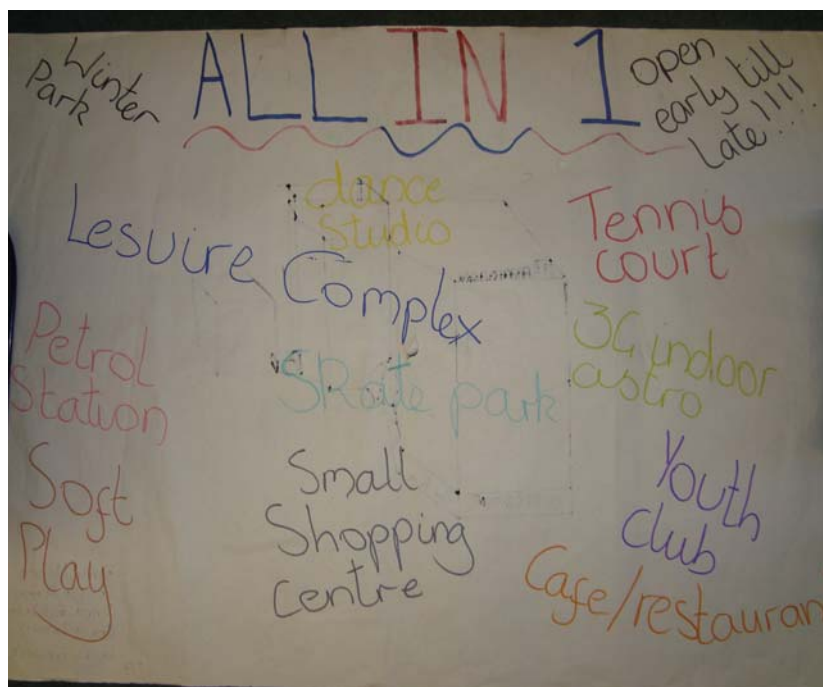 Winter
Park
ALL IN 1
Open
early till
Late!!!!....
dance
studio
Lesuire Complex
Tennis
court
Petrol
Station
Skate park
3G indoor
astro
Soft
Play
Small
Shopping
centre
Youth
club
Cafe/restauran